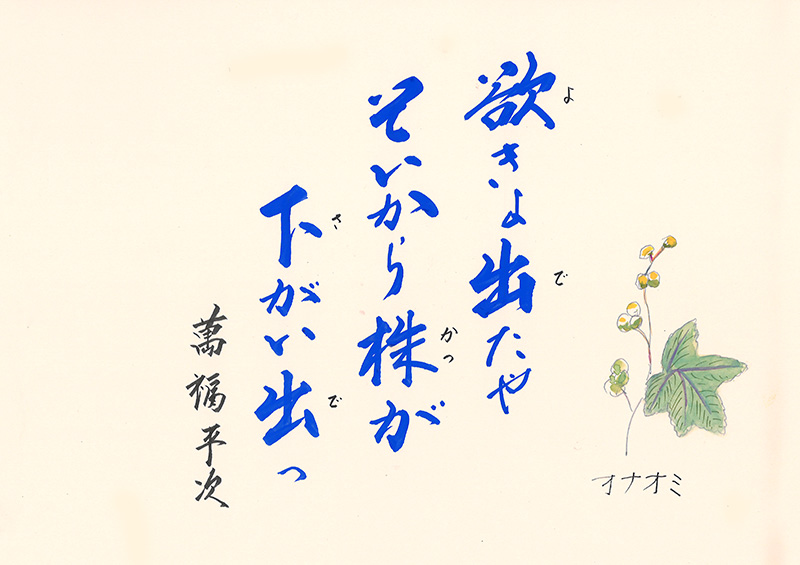 欲きよ出たや
よ
で
そいから株が
かつ
下がい出っ
さ
で
萬福平次
オナオミ